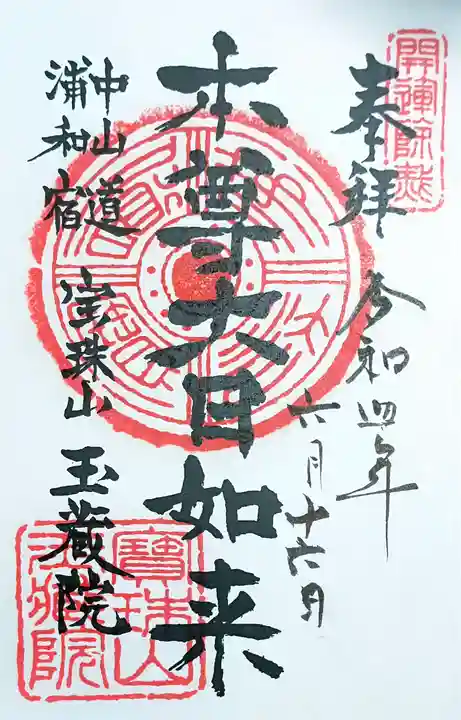 奉拝
令和四年
六月十六日
本尊大日如来
中山道
浦和宿
宝珠山 玉蔵院
寶珠山
玉蔵院